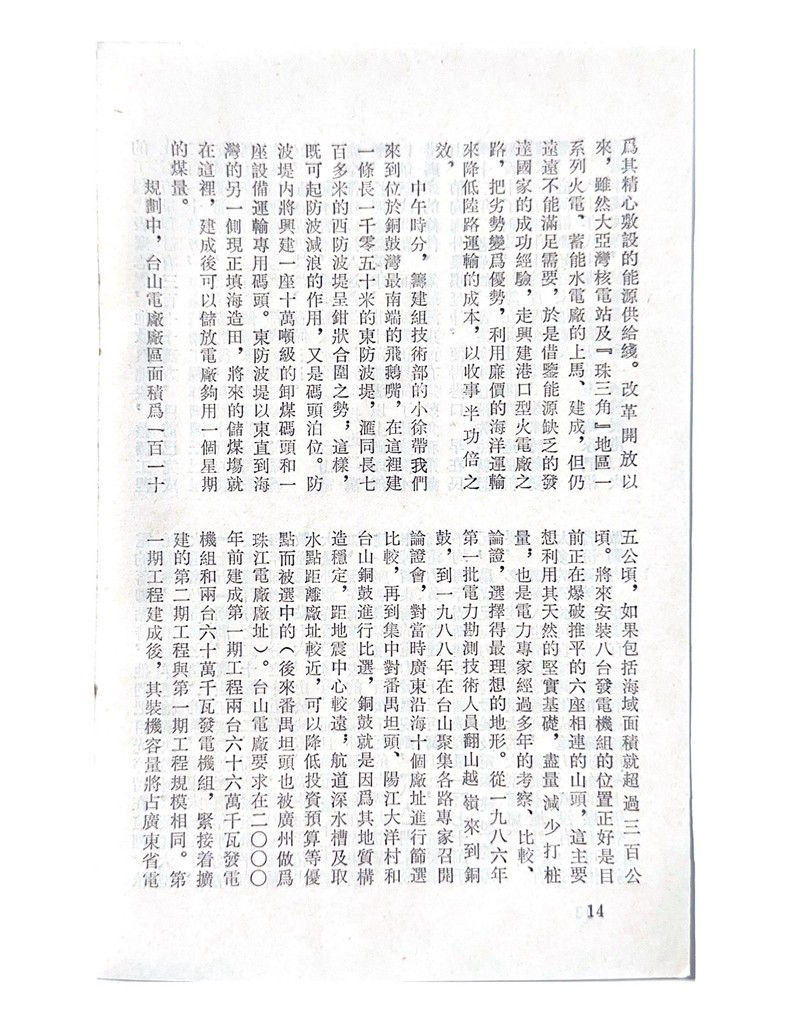 爲其精心敷設的能源供給綫。改革開放以
來，雖然大亞灣核電站及『珠三角』地區一
系列火電、蓄能水電廠的上馬、建成，但仍
遠遠不能滿足需要，於是借鑒能源缺乏的發
達國家的成功經驗，走興建港口型火電廠之
路，把劣勢變爲優勢，利用廉價的海洋運輸
來降低陸路運輸的成本，以收事半功倍之
效，
中午時分，籌建組技術部的小徐帶我們
來到位於銅鼓灣最南端的飛鵝嘴，在這裡建
一條長一千零五十米的東防波堤，滙同長七
百多米的西防波堤呈鉗狀合圍之勢，這樣，
既可起防波減浪的作用，又是碼頭泊位。防
波堤内將興建一座十萬噸級的卸煤碼頭和一
座設備運輸專用碼頭。東防波堤以東直到海
灣的另一側現正填海造田，將來的儲煤塲就
在這裡，建成後可以儲放電廠夠用一個星期
的煤量。
規劃中，台山電廠廠區面積爲一百一十
五公頃，如果包括海域面積就超過三百公
頃。將來安裝八台發電機組的位置正好是目
前正在爆破推平的六座相連的山頭，這主要
想利用其天然的堅實基礎，盡量減少打桩
量，也是電力專家經過多年的考察、比較、
論證，選擇得最理想的地形。從一九八六年
第一批電力勘測技術人員翻山越嶺來到銅
鼓，到一九八八年在台山聚集各路專家召開
論證會，對當時廣東沿海十個廠址進行篩選
比較，再到集中對番禺坦頭、陽江大洋村和
台山銅鼓進行比選，銅鼓就是因爲其地質構
造穩定，距地震中心較遠，航道深水槽及取
水點距離廠址較近，可以降低投資預算等優
點而被選中的（後來番禺坦頭也被廣州做爲
珠江電廠廠址）。台山電廠要求在二〇〇〇
年前建成第一期工程兩台六十六萬千瓦發電
機組和兩台六十萬千瓦發電機組，緊接着擴
建的第二期工程與第一期工程規模相同。第
一期工程建成後，其裝機容量將占廣東省電
14